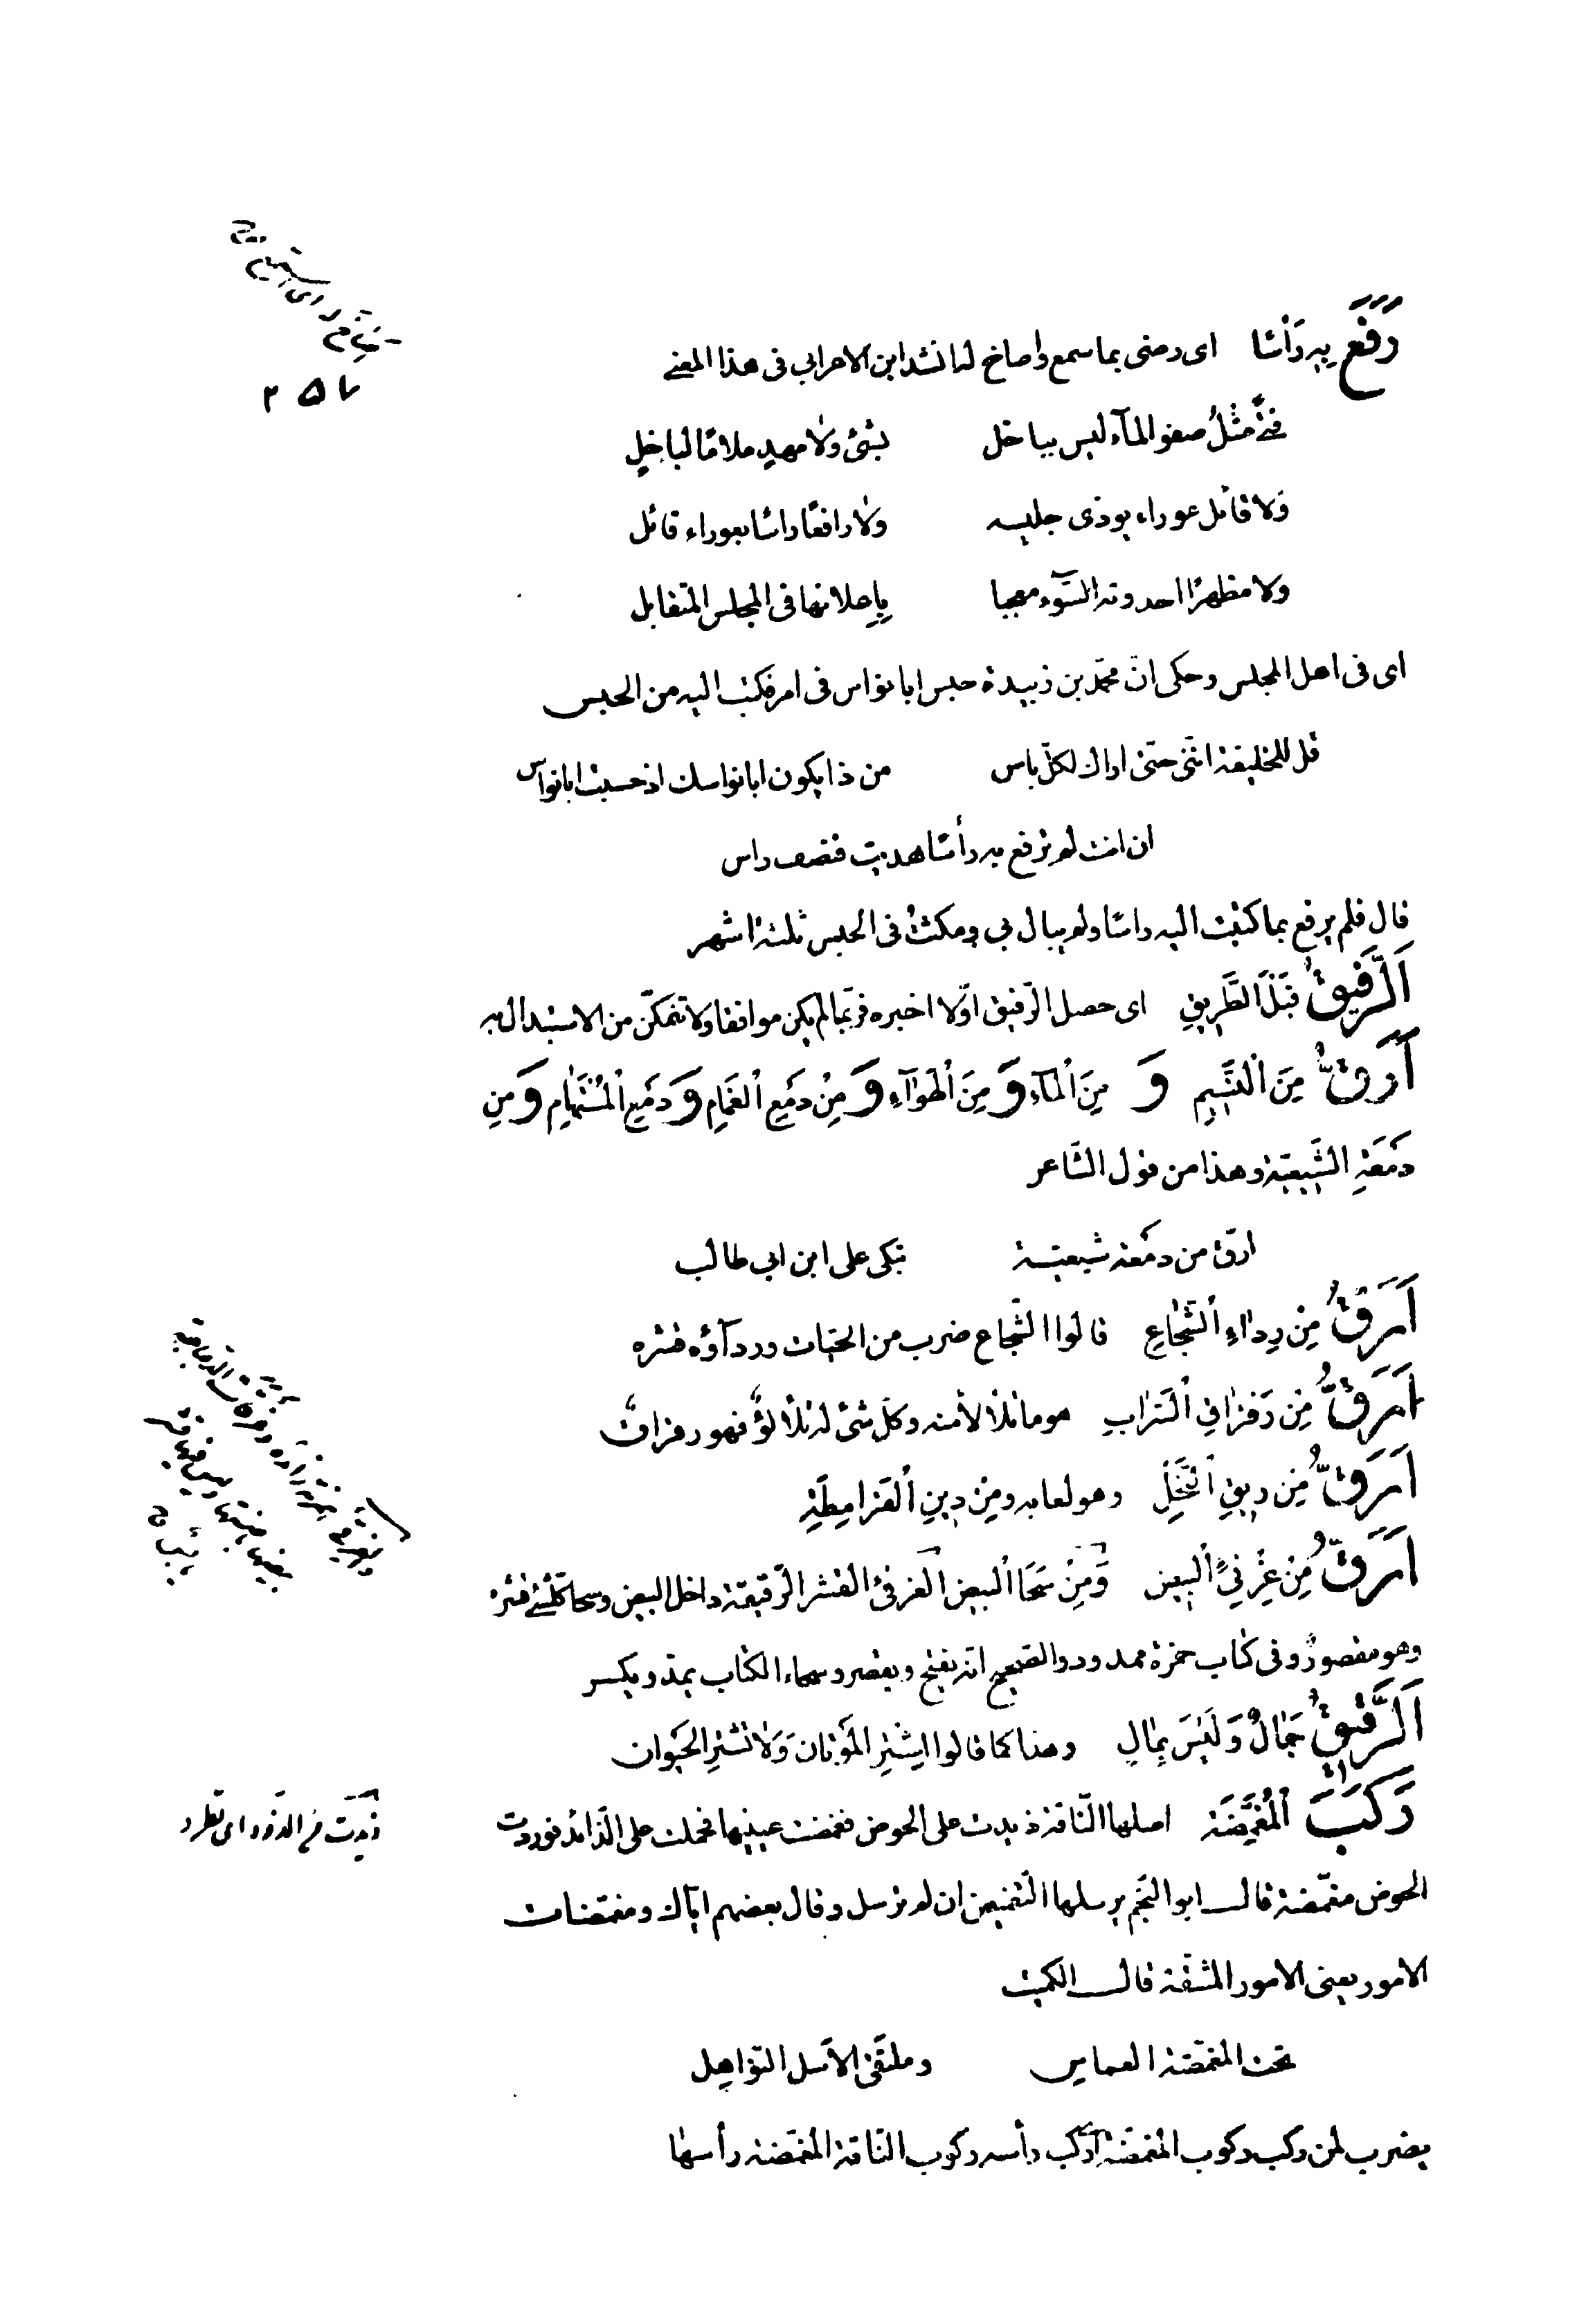 رَفَعَ بِهِ رَأْسًا اى رضى بما سمع واصاخ له انشد ابن الاعرابي فى هذا المعنى
فتىً مثلُ صفو المآء ليس بباخل بشئ ولا مهدٍ ملامًا لباخلٍ
ولا قائل عوراء يوذى جليسه ولا رافعًا راسًا بعوراء قائل
ولا مظهرًا احدوثه السّوٓء معجبا بإعلانها فى المجلس المتقابل
اى فى اهل المجلس وحكى انّ محمّد بن زبيدة حبس ابا نواس فى امر فكتب اليه من الحبس
قل للخليفة انّنى حتّى اراك لكلّ باس من ذا يكون ابا نواسك اذ حسبت ابا نواس
ان انت لم ترفع به رأسًا هديت فنصف راس
قال فلم يرفع بما كتبت اليه راسًا ولم يبال بي ومكثتُ فى الحبس ثلثة اشهر
اَلرَّفِيقُ قَبْلَ الطَّرِيقِ اى حصل الرّفيق اوّلا اخبره فربّما لم يكن موافقا ولا تتمكّن من الاستبدال به
اَرَقُّ مِنَ النَّسِيمِ وَ مِنَ المَآءِ وَ مِنَ الهَوَآءِ وَ مِنْ دَمْعِ الغَمَامِ وَ دَمْعِ المُسْتَهَامِ وَ مِن
دَمْعَةِ الشِّيعِيَّةِ وهذا من قول الشّاعر
ارقّ من دمعة شيعيّة تبكى على ابن ابي طالب
اَرَقُّ مِنْ رِدَاءِ الشُّجَاعِ قالوا الشّجاع ضرب من الحيّات وردآؤه قشره
اَرَقُّ مِنْ رَقْرَاقِ السَّرَابِ هو ما تلألأ منه وكلّ شئ له تلألؤٌ فهو رقراقٌ
اَرَقُّ مِن رِيقِ النَّحْلِ وهو لعابه ومِنْ دِينِ القَرَامِطَةِ
اَرَقُّ مِنْ غِرْقِئِ البَيضِ وَمِنْ سَحَا البيض الغرقئ القشر الرّقيقة داخل البيض وسحا كلّ شئ قشره
وهو مقصورٌ وفى كتاب حمزة ممدود والصّحيح انّه يفتح ويقصر وسحاء الكتاب يمدّ ويكسر
اَلرَّقِيقُ جَمَالٌ وَلَيْسَ بِمَالٍ وهذا كما قالوا اِشْتَرِ المَوَتَانَ وَلَا تَشْتَرِ الحَيَوان
رَكِبَ المُغَمِّضَةَ اصلها النّاقة ذيدت على الحوض فغمضت عينيها فحملت على الذّائد فوردت
الحوض مغمّضة قال ابو النّجم يرسلها التّغميض ان لم ترسل وقال بعضهم ايّاك ومغمّضات
الامور يعنى الامور المشقّة قال الكميت
تحت المغمّضة العماس وملتقى الاسل النّواهل
يضرب لمن ركب ركوب المغمّضة اركب رأسه ركوب النّاقة المغمّضة رأسها
٢٥٧
ذيدت من الذّود اى تطرد